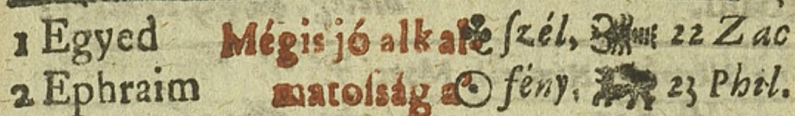 1 Egyed Mégis jó alkal⸗ ſzél, 22 Zac
2 Ephraim matoſság a' ☉ fény, 23 Phil.